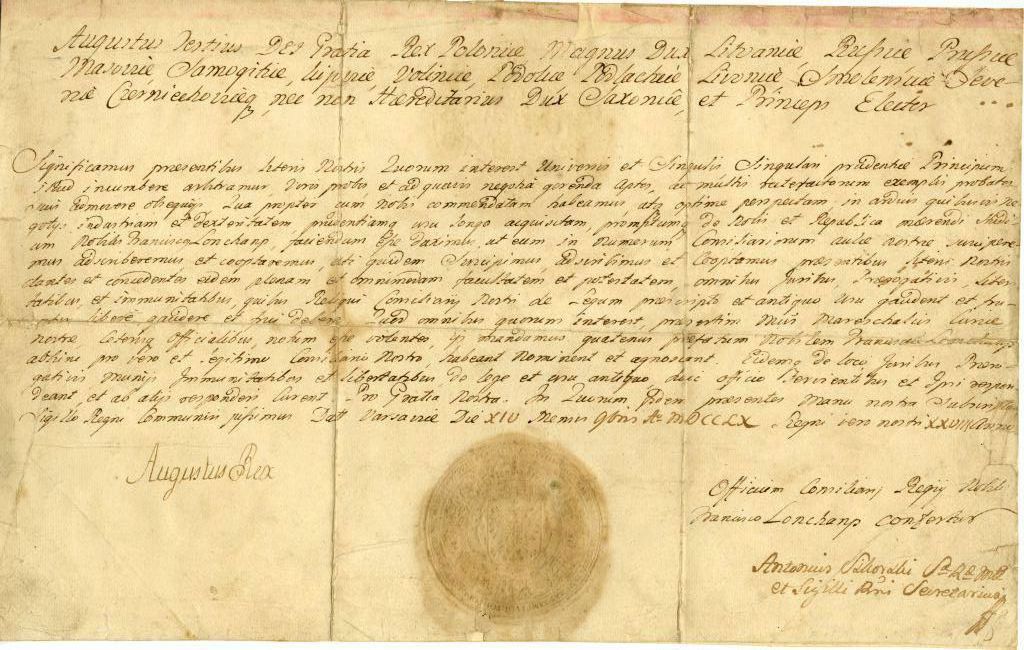 Augustus Tertius Dei Gratia Rex Poloniæ Magnus Dux Litvaniæ Russiæ Prussiæ
Masoviæ Samogitiæ Kijoviæ Voliniæ Podoliæ Podlachiæ Livoniæ Smolensciæ Seve
riæ Czerniechoviæq nec non Hæreditarius Dux Saxoniæ et Princeps Elector
Significamus præsentibus Literis Nostris Quorum interest Universis et Singulis Singulari prudentiæ Principum
illud incumbere arbitramur Viros probos et ad quævis negotia gerenda aptos, ac multis
suis Qua propter cum Nobis commendatam habeamus atq optime perspectam, in arduis quibusvis Ne
gotys industriam et dexteritatem prudentiamq usu longo acquisitam, promptumq de Nobis et Republica merendi
um Nobilis Franciscq Lonchanp, faciendum esse duximus, ut eum in Numerum Consiliariorum aulæ nostræ suscipere
mus adscriberemus et cooptaremus, uti quidem Suscipimus adscribimus et Cooptamus præsentibus Literis Nostris
dantes et concedentes eidem plenam et omnimodam facultatem et potestatem, omnibus Juribus Prærogativis Liber
tatibus, et Immunitatibus, quibus Reliqui Consiliarij Nostri de Legum præscripto et antiquo usu gaudent et fru
libere gaudere et frui debere Quod omnibus quorum interest, præsertim Mareschalis Curiæ
nostræ Officialibus, notum esse volentes, mandamus quatenus præfatum Nobilem Franciscum Lonchanp
abhinc pro vero et legitimo Consiliario Nostro habeant Nominent et agnoscant. Eidemq de loco, Juribus Prero
gativis Munijs Immunitatibus et libertatibus, de lege et usu antiquo, huic officio Servientibus et Ipsi respon
deant, et ab alijs responderi curent Pro Gratia Nostra. In Quorum fidem præsentes Manu nostra Subscriptas
Sigillo Regni Communiri jussimus Dat Varsaviæ Die XIV Mensis 9bris Ao MDCCLX Regni vero nostri XXVIII Anno
Augustus Rex
Officium Consiliarij Regij Nobili
Francisco Lonchanp confertur
Antonius Sikorski
et Sigilli Secretarius